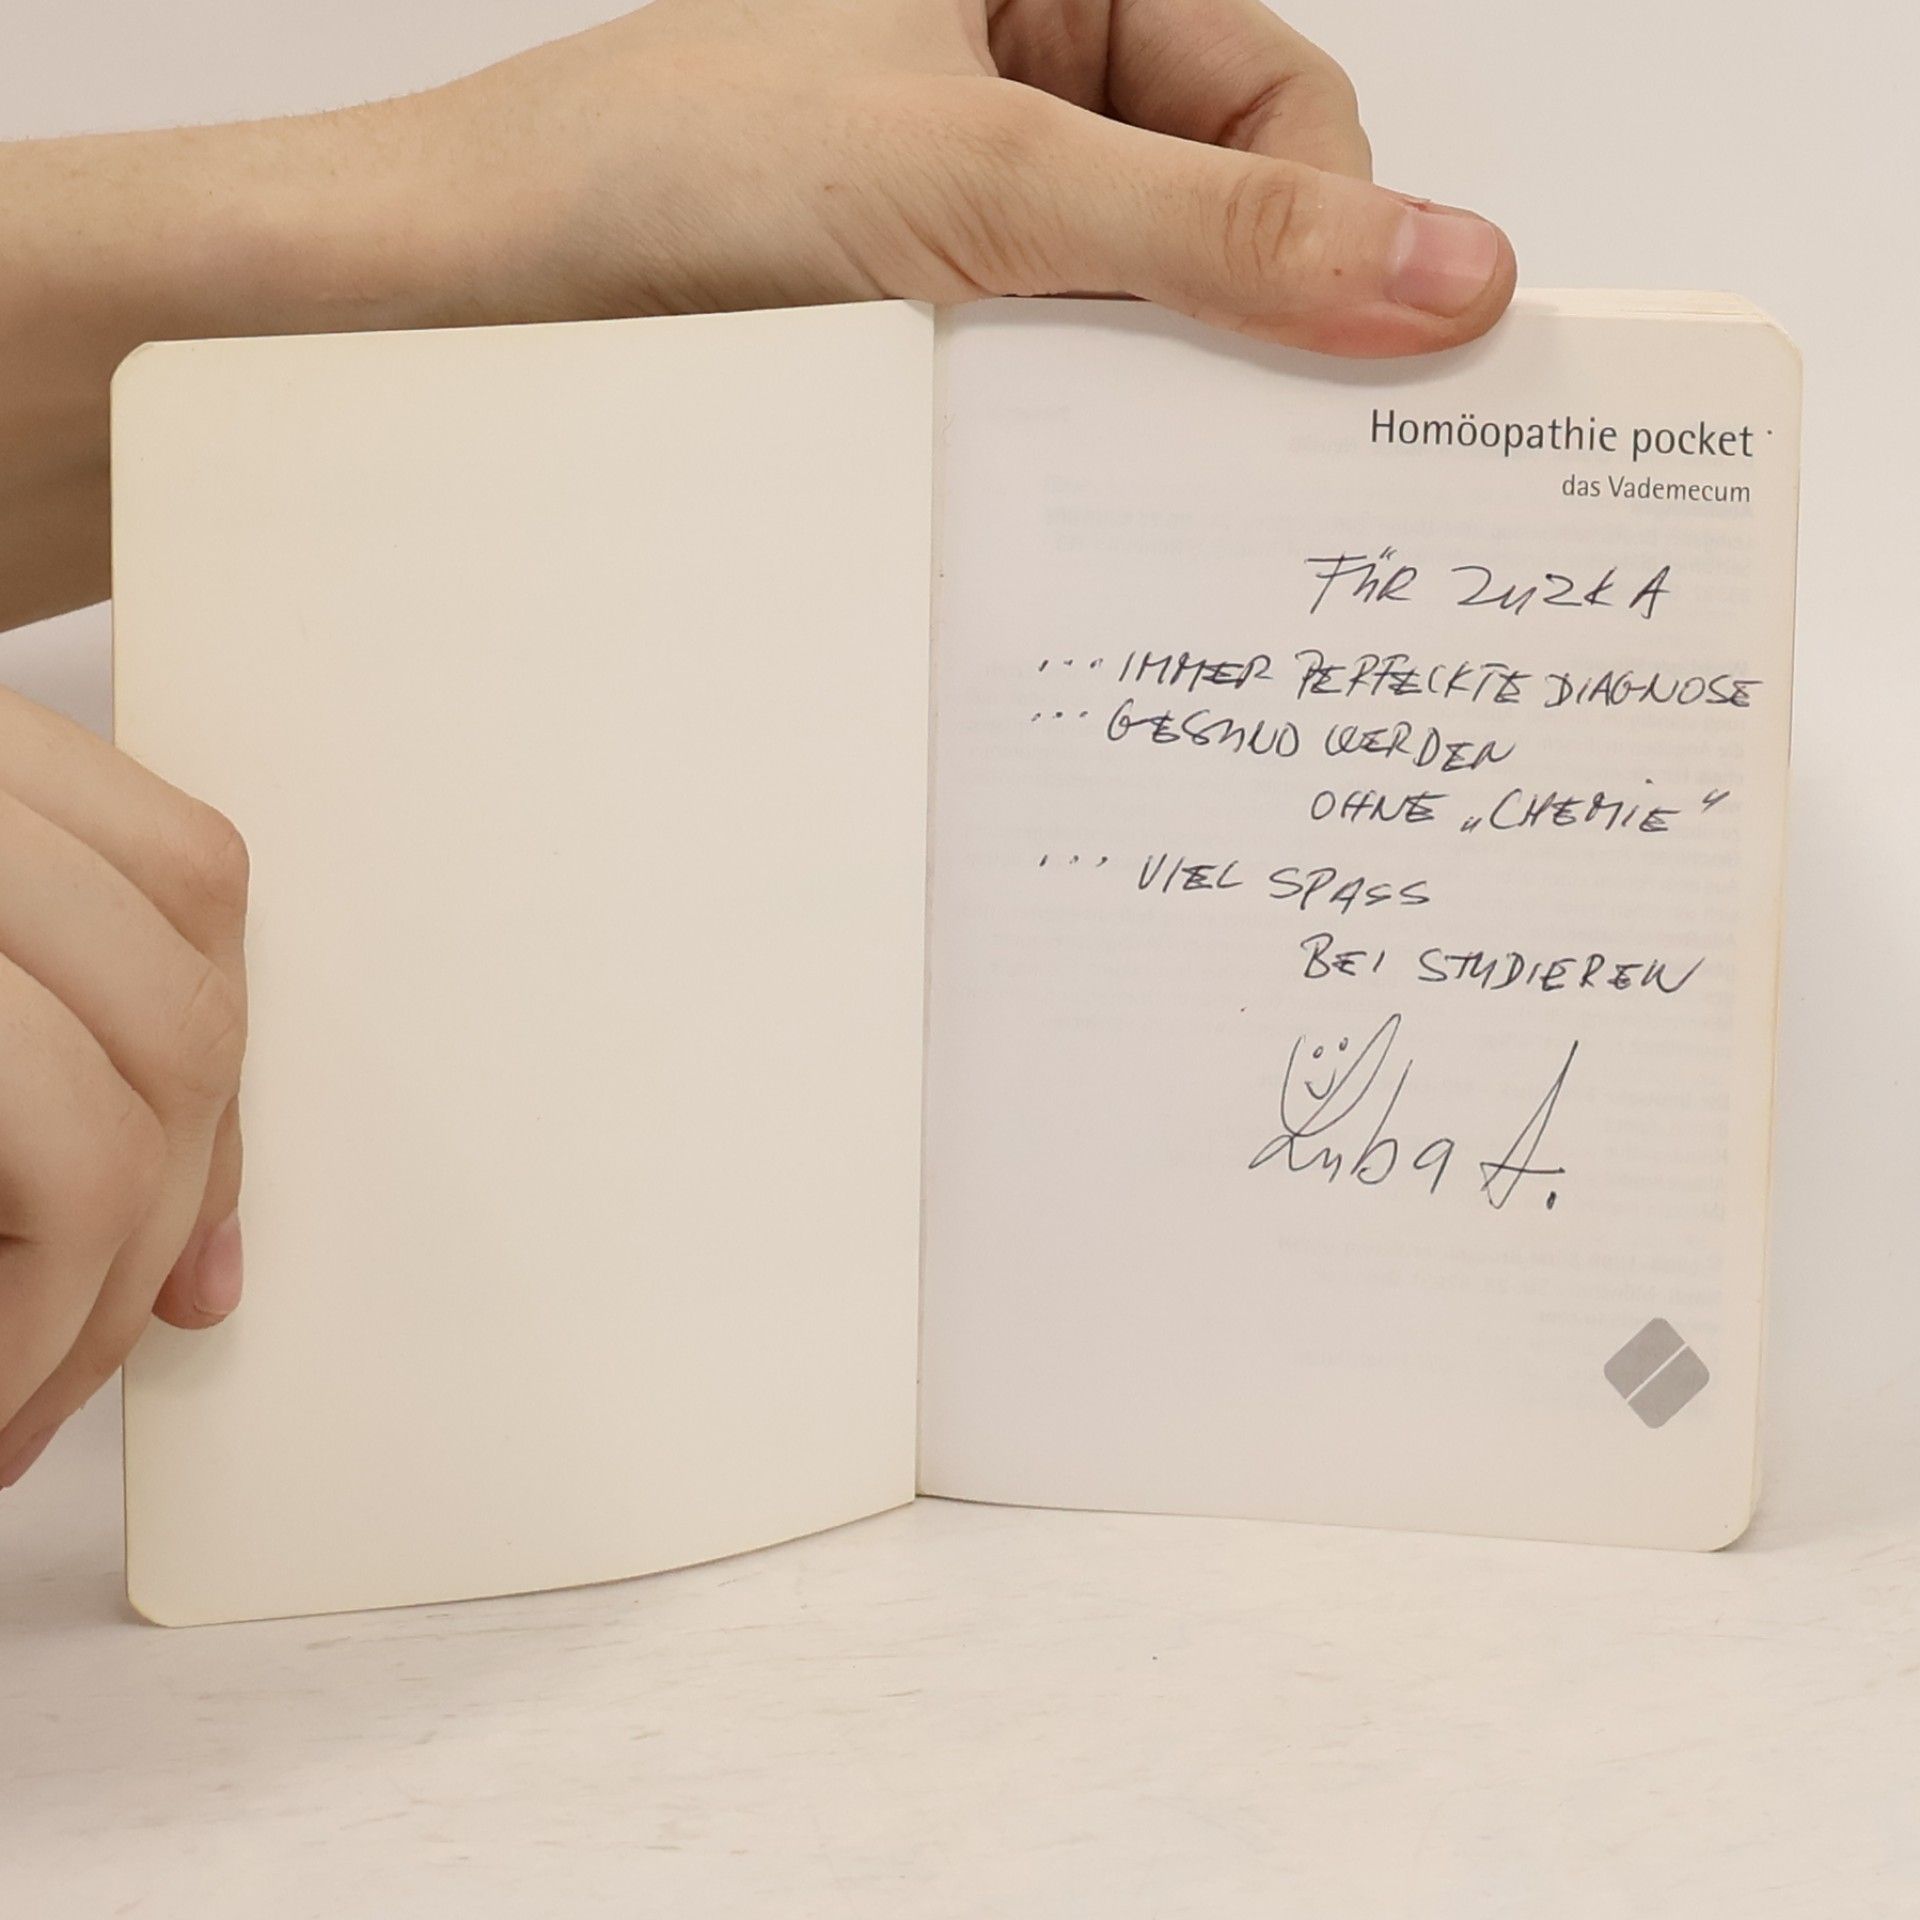 Homöopathie pocket
das Vademecum
FÜR ZUZKA
... IMMER PERFECKTE DIAGNOSE
... GESUND WERDEN
OHNE „CHEMIE"
... VIEL SPASS
BEI STUDIEREN
Luba A.